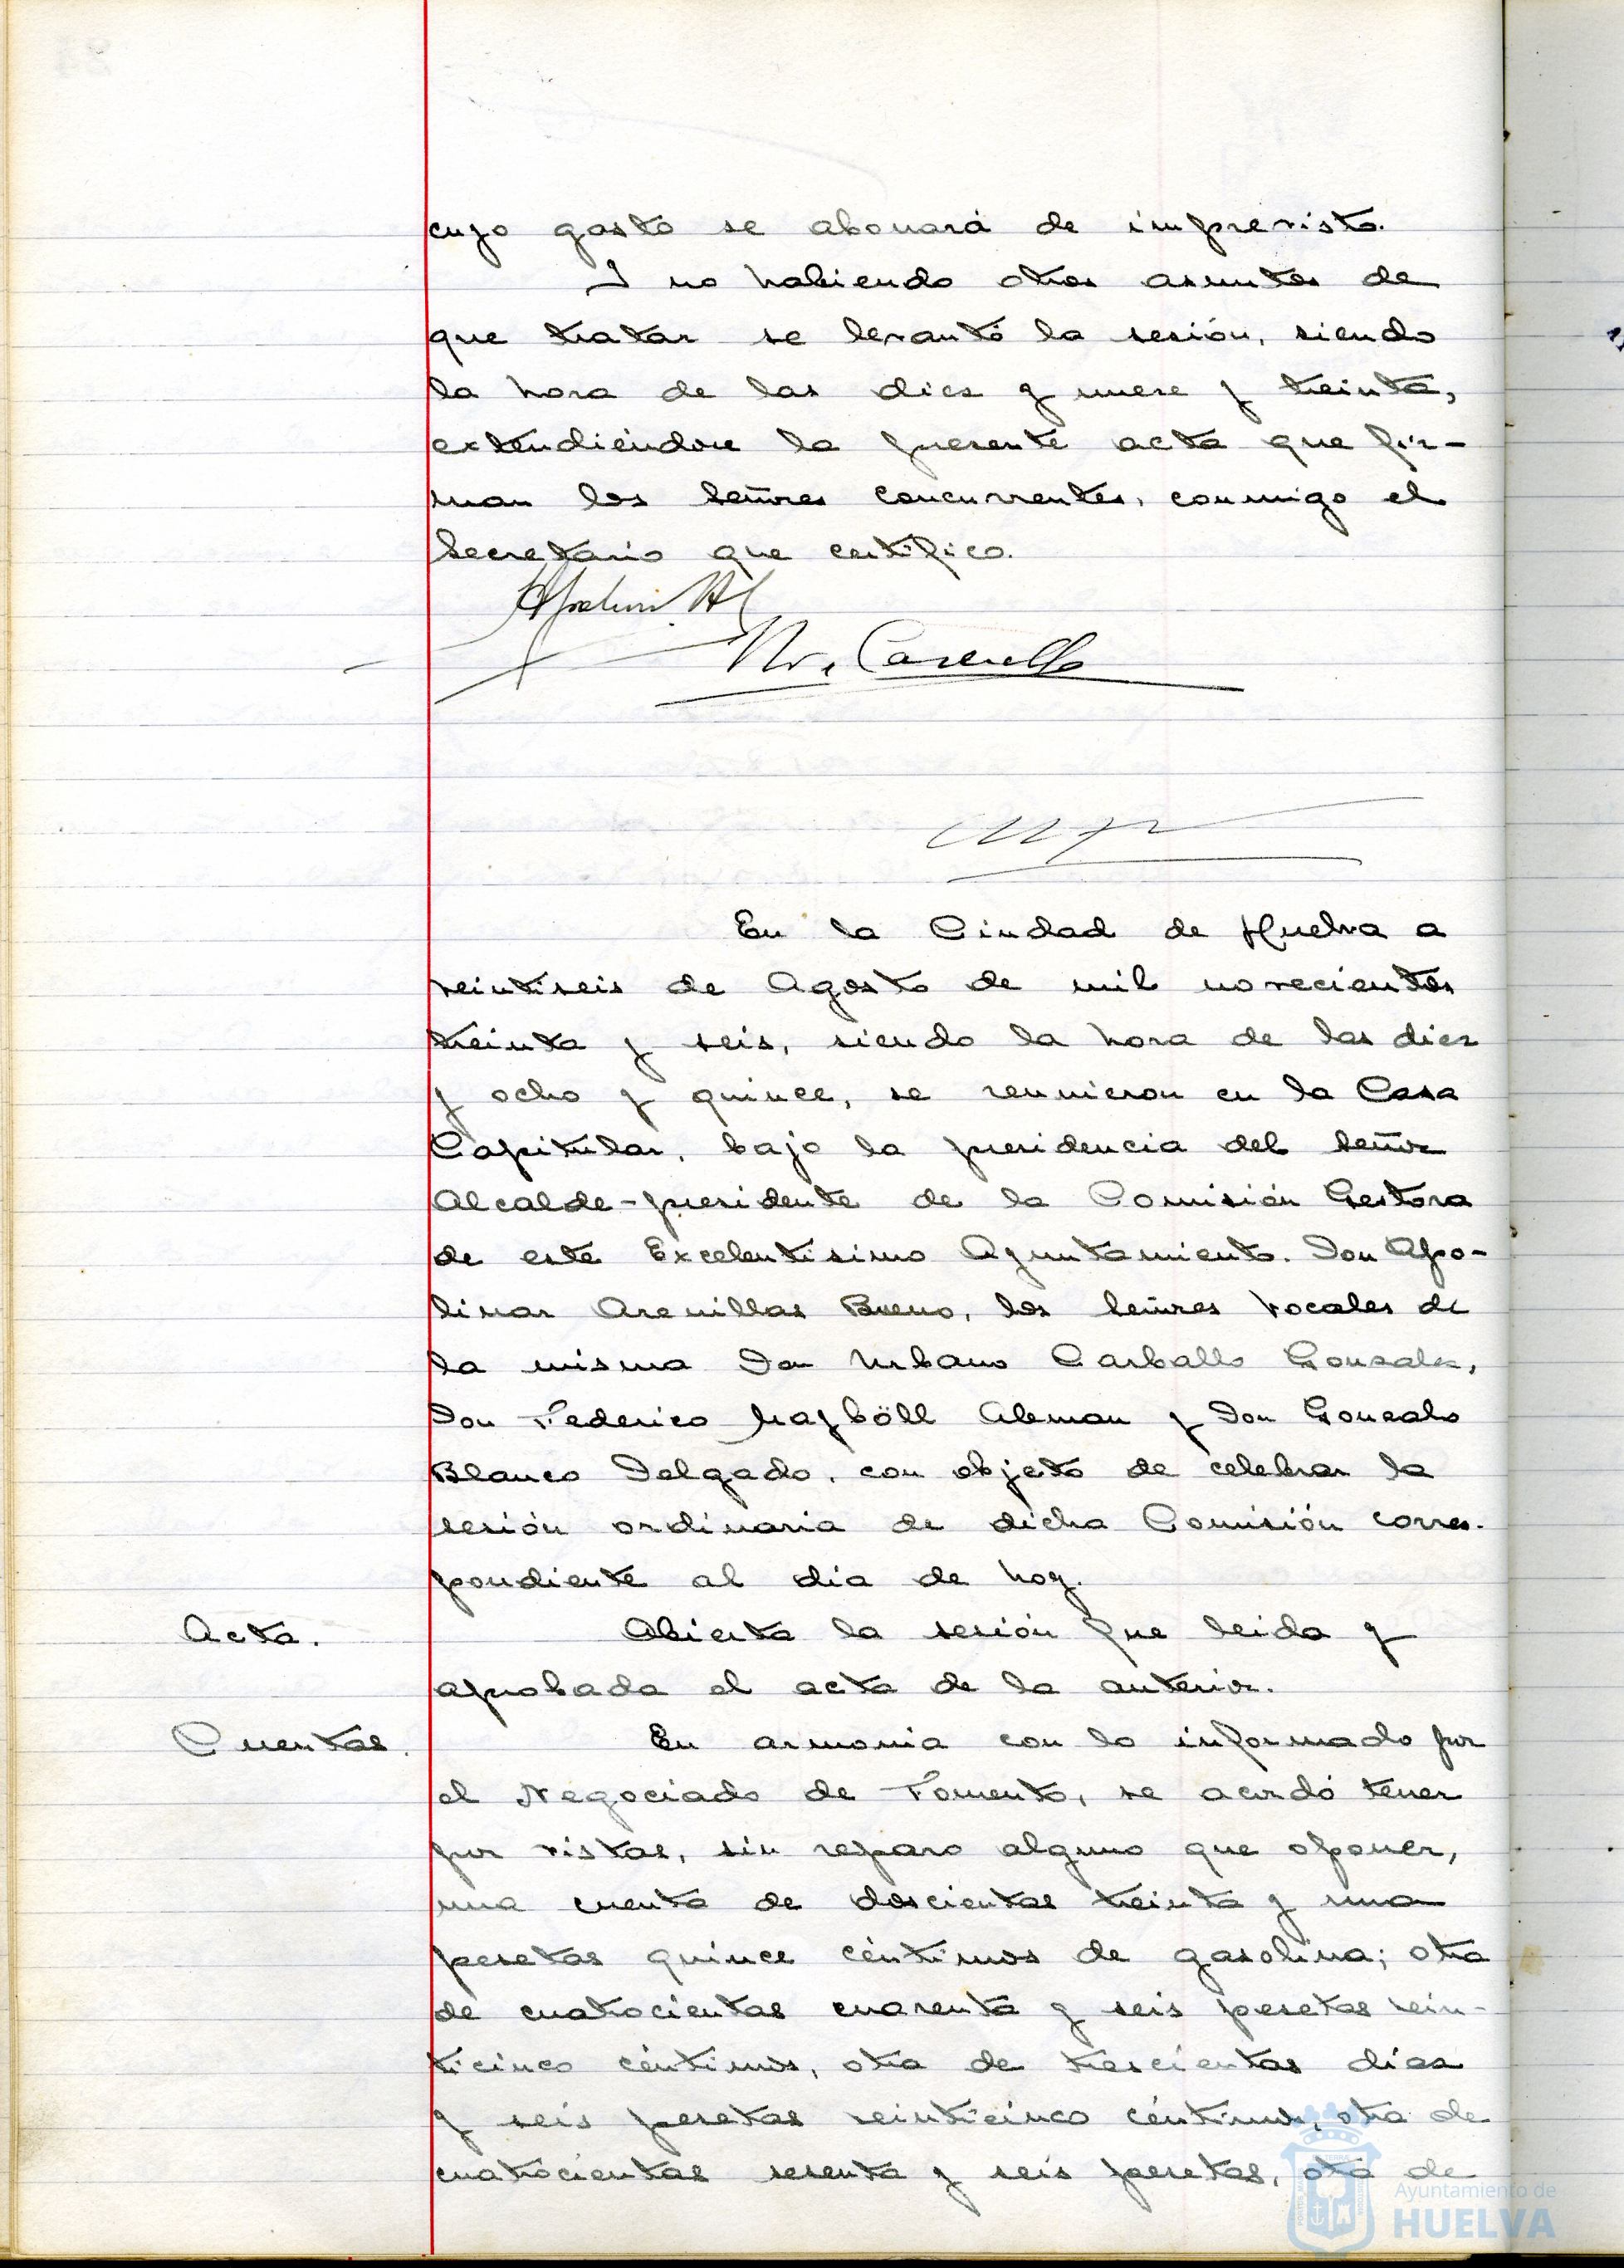 cuyo gasto se abonará de imprevisto.
Y no habiendo otros asuntos de
que tratar se levantó la sesión, siendo
la hora de las diez y nueve y treinta,
extendiéndose la presente acta que fir-
man los Señores concurrentes, conmigo el
Secretario que certifico.
En la Ciudad de Huelva a
veintiseis de Agosto de mil novecientos
treinta y seis, siendo la hora de las diez
y ocho y quince, se reunieron en la Casa
Capitular, bajo la presidencia del Señor
Alcalde-presidente de la Comisión Gestora
de este Excelentisimo Ayuntamiento. Don Apo-
linar Arenillas Bueno, los Señores Vocales de
la misma Don Urbano Carballo Gonzalez,
Don Federico Mayböll Aleman y Don Gonzalo
Blanco Delgado, con objeto de celebrar la
sesión ordinaria de dicha Comisión corres-
pondiente al dia de hoy.
Acta.
Abierta la sesión fue leida y
aprobada el acta de la anterior.
Cuentas.
En armonia con lo informado por
el Negociado de Fomento, se acordó tener
por vistas, sin reparo alguno que oponer,
una cuenta de doscientas treinta y una
pesetas quince céntimos de gasolina; otra
de cuatrocientas cuarenta y seis pesetas vein-
ticinco céntimos, otra de trescientas diez
y seis pesetas veinticinco céntimos, otra de
cuatrocientas sesenta y seis pesetas, otra de
Ayuntamiento de
HUELVA